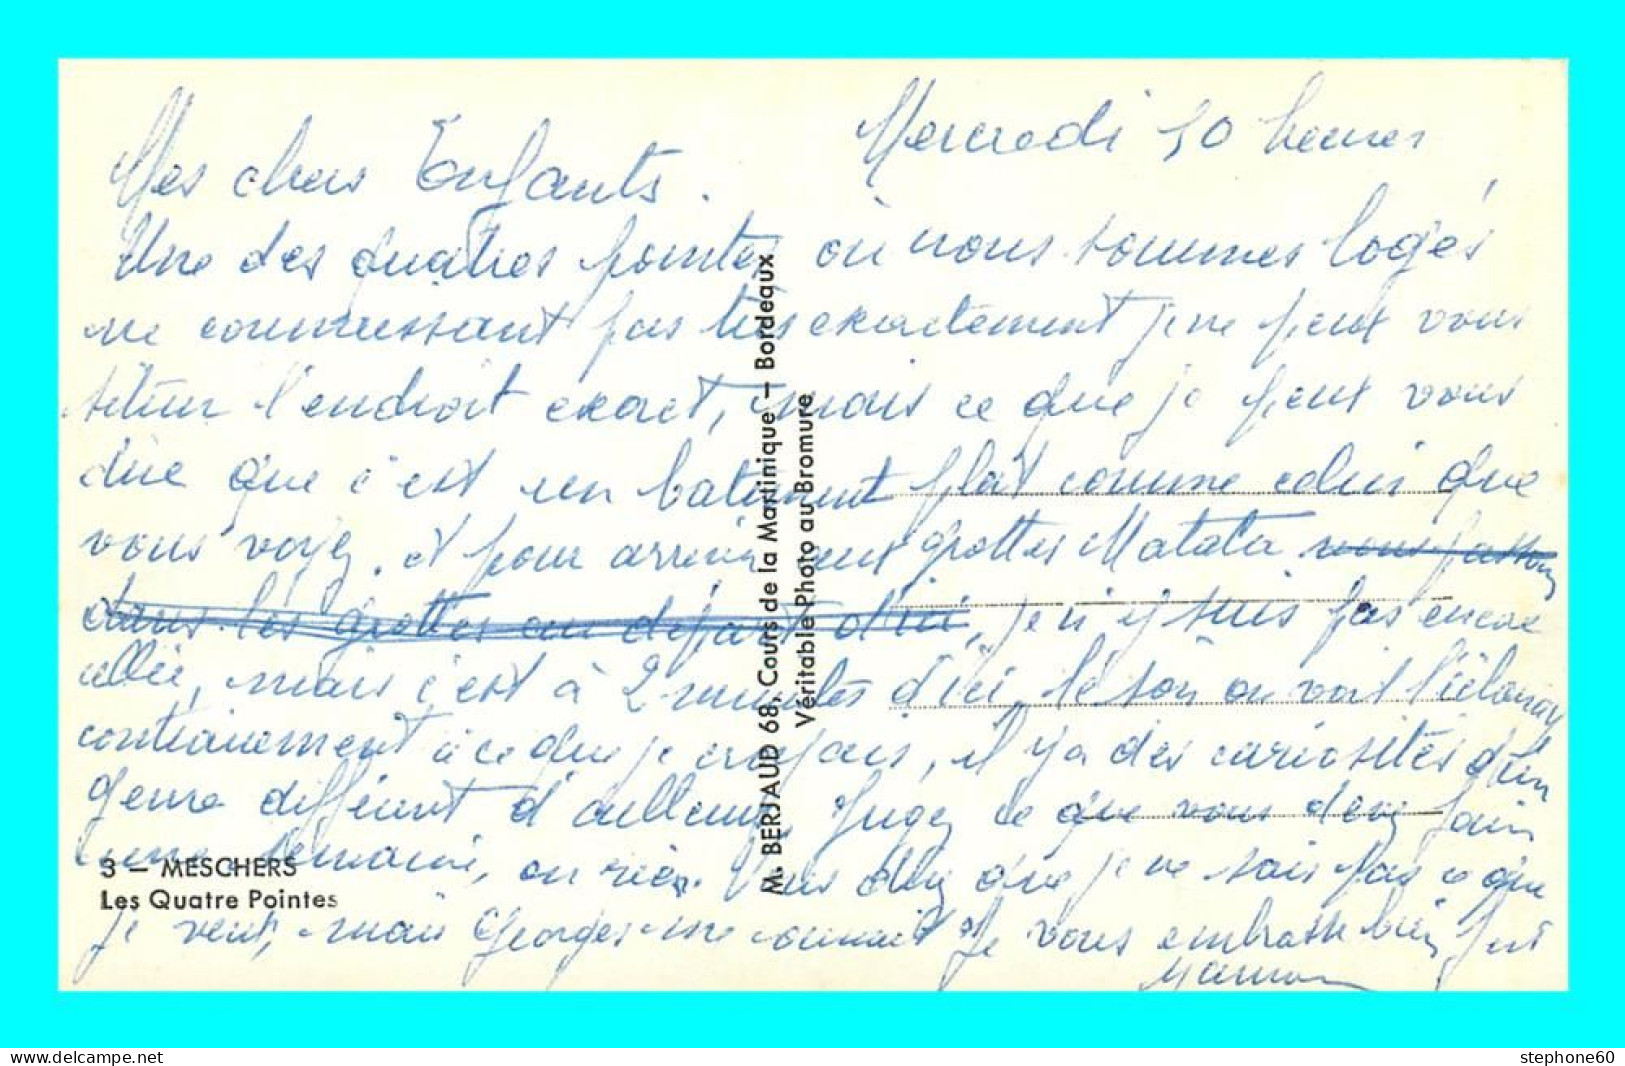 Mercredi 10 heures
Mes chers Enfants.
Une des quatres pointes où nous sommes logés
ne connaissant pas très exactement je ne peux vous
situer l'endroit exact, mais ce que je peux vous
dire que c'est un batiment plat comme celui que
vous voyez. et pour arriver aux grottes Matata
dans les grottes au départ d'ici, je n'y suis pas encore
allée, mais c'est à 2 minutes d'ici, le soir on voit
contrairement à ce que je croyais, il y a des curiosités d'un
genre différent d'ailleurs. Jugez ce que vous devez faire
une semaine, ou rien. Vous dire que je ne sais pas ce que
je veux, mais Georges me connait. Je vous embrasse bien fort
Maman
3 — MESCHERS
Les Quatre Pointes
M. BERJAUD 68, Cours de la Martinique — Bordeaux
Véritable Photo au Bromure
www.delcampe.net
stephone60